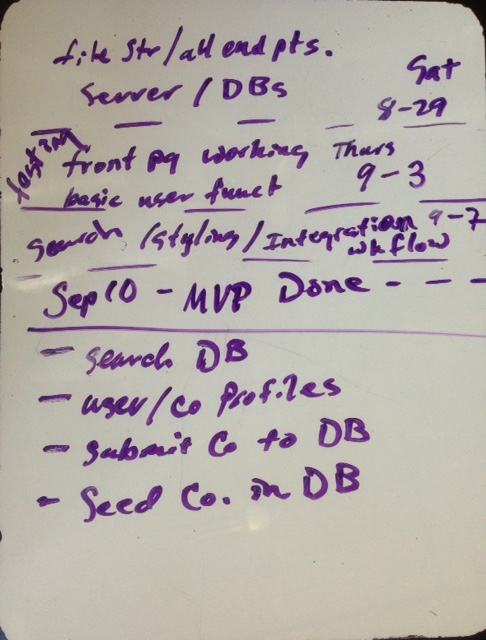 file Str/all end pts.
Server / DBs
Sat
8-29
front pg working
basic user funct
Thurs
9-3
search /styling/Integration 9-7
wkflow
Sep 10 - MVP Done - - -
- search DB
- user/Co Profiles
- submit Co to DB
- Seed Co. in DB